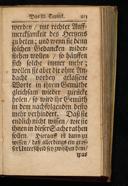 Das III. Capitel. 213
werden / mit rechter Auff-
mercksamkeit des Hertzens
zu beten; und wenn sie denn
solchen Gedancken wider-
stehen wollen / so häuffen
sich solche immer mehr;
wollen sie aber die ohne An-
dacht vorbey gelassene
Worte in ihrem Gemüthe
gleichsam wieder zurücke
holen / so wird ihr Gemüth
in dem nachfolgenden desto
mehr verhindert. Daß sie
endlich nicht wissen / wie sie
ihnen in dieser Sache rathen
sollen. Hierauff ist nun zu
wissen / daß allerdings ein gros-
ser Unterscheid sey zwischen den
was